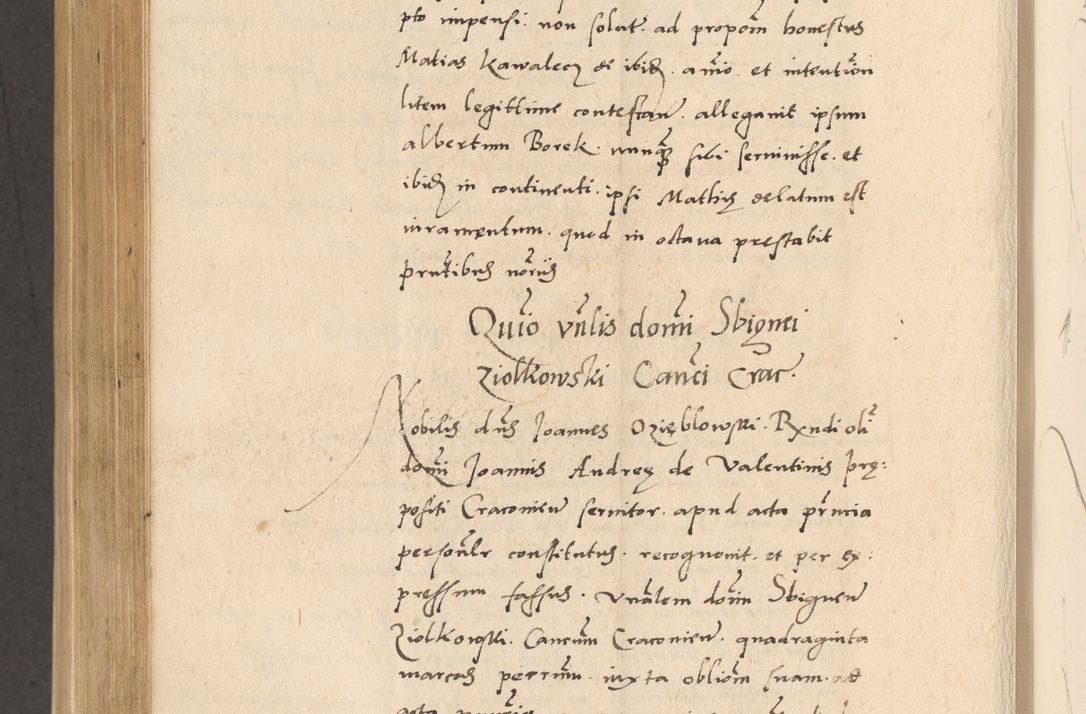 pto impensi. non solut. ad propom honestus
Matias Kawalecz de ibid. anio. et intention
litem legittime contestan. alleganit ipsum
albertum Borek. nunq sibi seruiuisse. et
ibid in continenti. ipsi Mathię delatum est
iuramentum. quod in octaua prestabit
prntibus noriis
Quio vnlis domi Sbignei
Ziolkowski Canci Crac.
Nobilis dns Joannes Ozięblowski. Rxndi oli
domi Joannis Andreę de Valentinis prę:
positi Craconien seruitor. apud acta prncia
personlr constitutus. recognouit. et per ex:
pressum fassus. Vnalem domin Sbigneu
Ziolkowski. Cancum Craconien. quadraginta
marcas pecrum. iuxta obliom suam. ad
acta